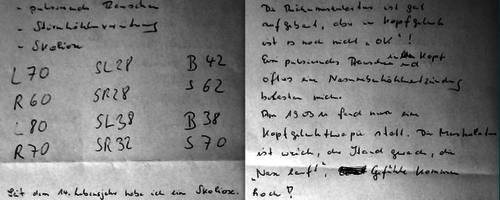 - pulsierendes Rauschen
- Stirnhöhlenvereiterung
- Skoliose
L 70 SL 28 B 42
R 60 SR 28 S 62
L 80 SL 38 B 38
R 70 SR 32 S 70
Seit dem 14. Lebensjahr habe ich eine Skoliose.
Die ist gut
aufgebaut, aber im Kopfgelenk
ist es noch nicht „OK"!
Ein pulsierendes Rauschen im Kopf und
öfters eine Nasennebenhöhlenentzündung
belasten mich.
Am 19.03. fand nun eine
Kopfgelenktherapie statt. Die Muskulatur
ist weich, der Stand gerade, die
„Nase läuft", Gefühle kommen
hoch!